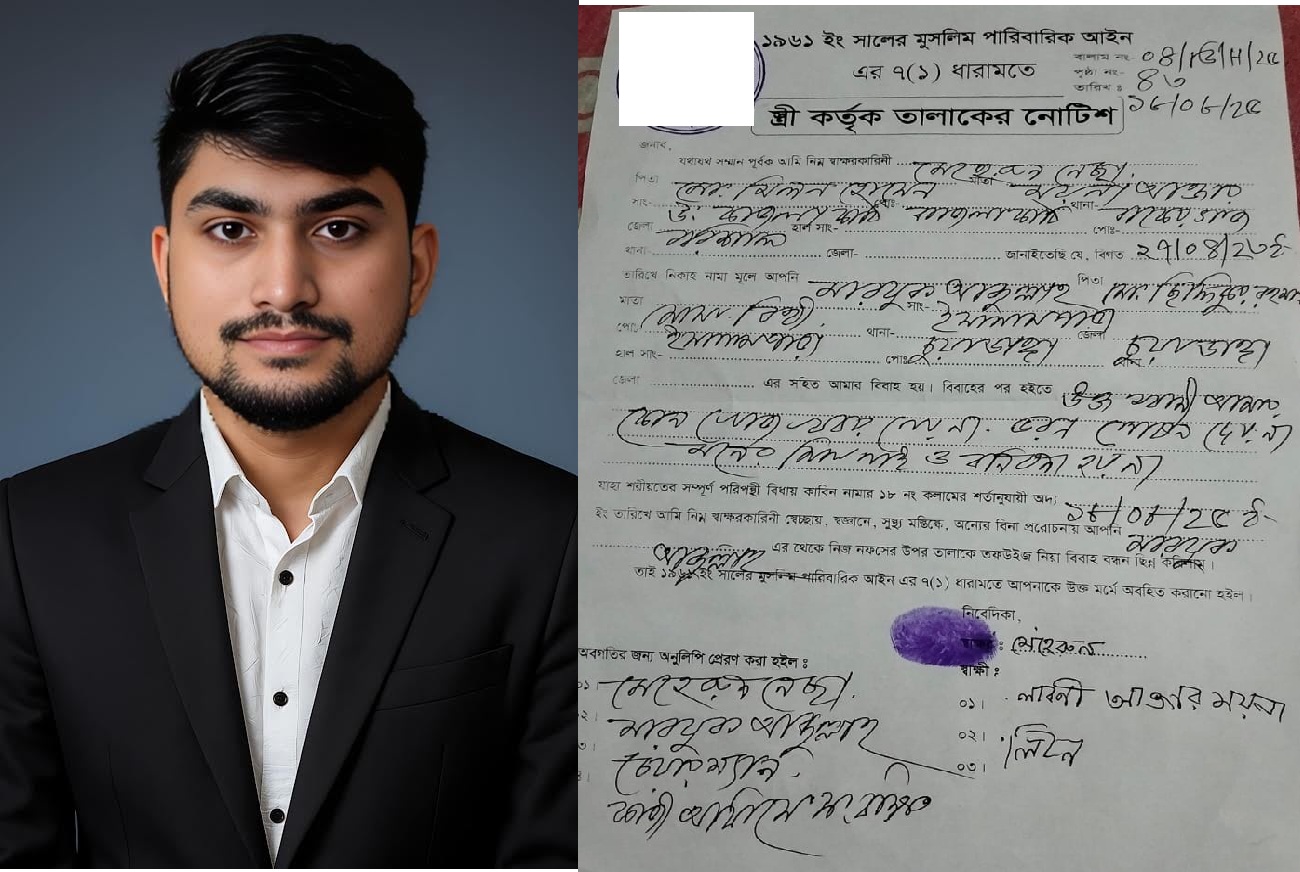 ১৯৬১ ইং সালের মুসলিম পারিবারিক আইন
এর ৭(১) ধারামতে
বালাম নং- ০৪/
পৃষ্ঠা নং- ৪৩
তারিখ ঃ ১৮/০৮/২৫
স্ত্রী কর্তৃক তালাকের নোটিশ
জনাব,
যথাযথ সম্মান পূর্বক আমি নিম্ন স্বাক্ষরকারিনী মেহেরুন নেছা
পিতা মো: মিলন হোসেন মাতা ময়না আক্তার
সাং- পোঃ- থানা-
জেলা বরিশাল হাল সাং- পোঃ-
থানা- জেলা- জানাইতেছি যে, বিগত ২৭/০৪/২৩ ইং
তারিখে নিকাহ নামা মূলে আপনি মারযুক আব্দুল্লাহ পিতা মো: ছিদ্দিকুর রহমান
মাতা সাং- ইসলামপাড়া
পোঃ ইসলামপাড়া থানা- চুয়াডাঙ্গা জেলা চুয়াডাঙ্গা
হাল সাং- পোঃ
জেলা এর সহিত আমার বিবাহ হয়। বিবাহের পর হইতে উক্ত স্বামী আমার
কোন খোজ খবর নেয় না. ভরন পোষন দেয় না
মনের মিল নাই ও বনিবনা হয় না
যাহা শরীয়তের সম্পূর্ণ পরিপন্থী বিধায় কাবিন নামার ১৮ নং কলামের শর্তানুযায়ী অদ্য ১৮/০৮/২৫ ইং
ইং তারিখে আমি নিম্ন স্বাক্ষরকারিনী স্বেচ্ছায়, স্বজ্ঞানে, সুস্থ মস্তিষ্কে, অন্যের বিনা প্ররোচনায় আপনি মারযুক
আব্দুল্লাহ এর থেকে নিজ নফসের উপর তালাকে তফউইজ নিয়া বিবাহ বন্ধন ছিন্ন করিলাম।
তাই ১৯৬১ ইং সালের মুসলিম পারিবারিক আইন এর ৭(১) ধারামতে আপনাকে উক্ত মর্মে অবহিত করানো হইল।
নিবেদিকা,
মেহেরুন
অবগতির জন্য অনুলিপি প্রেরণ করা হইল ঃ
স্বাক্ষী ঃ
০১। মেহেরুন নেছা.
০১। লাবনী আক্তার ময়না
২। মারযুক আব্দুল্লাহ
০২। লিটন
৩। চেয়ারম্যান.
০৩।
৪। কাজী অফিসে সংরক্ষিত